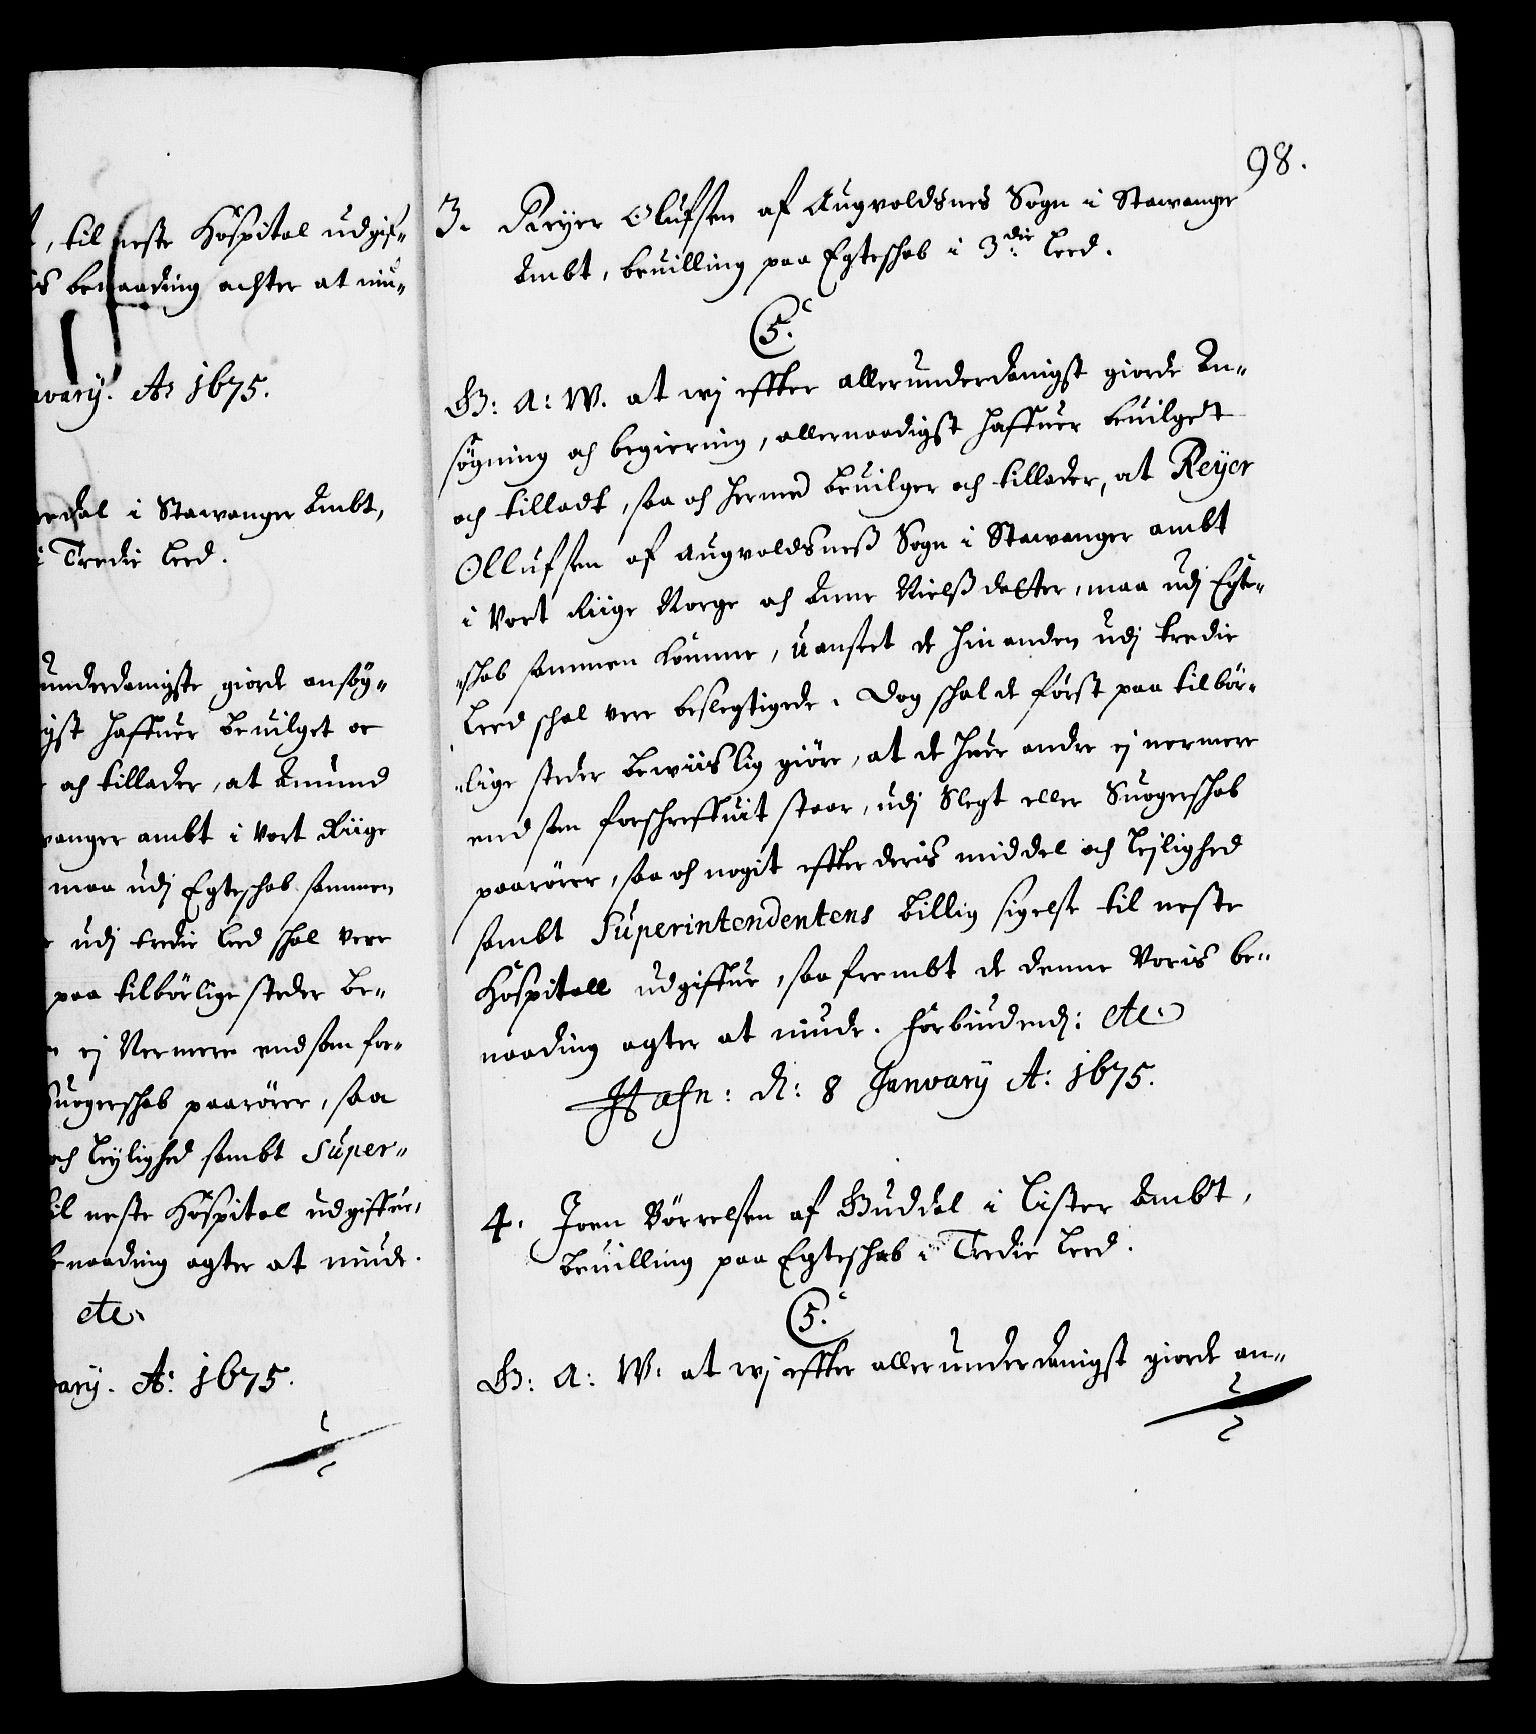 , til neste Hospital udgif-
is benaading achter at niu-
uary. Ao 1675.
edal i Stawanger Ambt,
i Tredie Leed.
underdanigste giorde ansøg-
gst haffuer beuilget oc
och tillader, at Amund
vanger ambt i Vort Riige
maa udj Egteschab sammen
udj tredie Leed schal vere
paa tilbörlige steder be-
ej Nermere end som for-
Suogerschab paarörer, saa
och Leylighed sambt Super-
til neste Hospital udgiffue,
benaading agter at niude.
etc.
uary. Ao: 1675.
98.
3. Reyer Olufsen af Augvoldsnes Sogn i Stawanger
Ambt, beuilling paa Egteschab i 3die Leed.
C5.
G: A: W. at wj effter allerunderdanigst giorde An-
søgning och begiering, allernaadigst haffuer beuilget
och tilladt, saa och hermed beuilger och tillader, at Reyer
Ollufsen af Augvoldsneß Sogn i Stawanger ambt
i Vort Riige Norge och Anne Nielßdatter, maa udj Egte-
schab sammen komme, uanseet de hinanden udj tredie
Leed schal vere beslegtigede. Dog schal de först paa tilbör-
lige steder bewiislig giöre, at de huer andre ej nermere
end som forschreffuit staar, udj Slegt eller Suogerschab
paarörer, saa och nogit effter deris middel och Lejlighed
sambt Superintendentens billig sigelse til neste
Hospitall udgiffue, saa frembt de denne Voris be-
naading agter at niude. Forbiudend: etc.
Hafn: d: 8 January Ao: 1675.
4. Joen Börrelsen af Guddal i Lister Ambt,
beuilling paa Egteschab i Tredie Leed.
C5.
G: A: W: at wj effter allerunderdanigst giorde an-